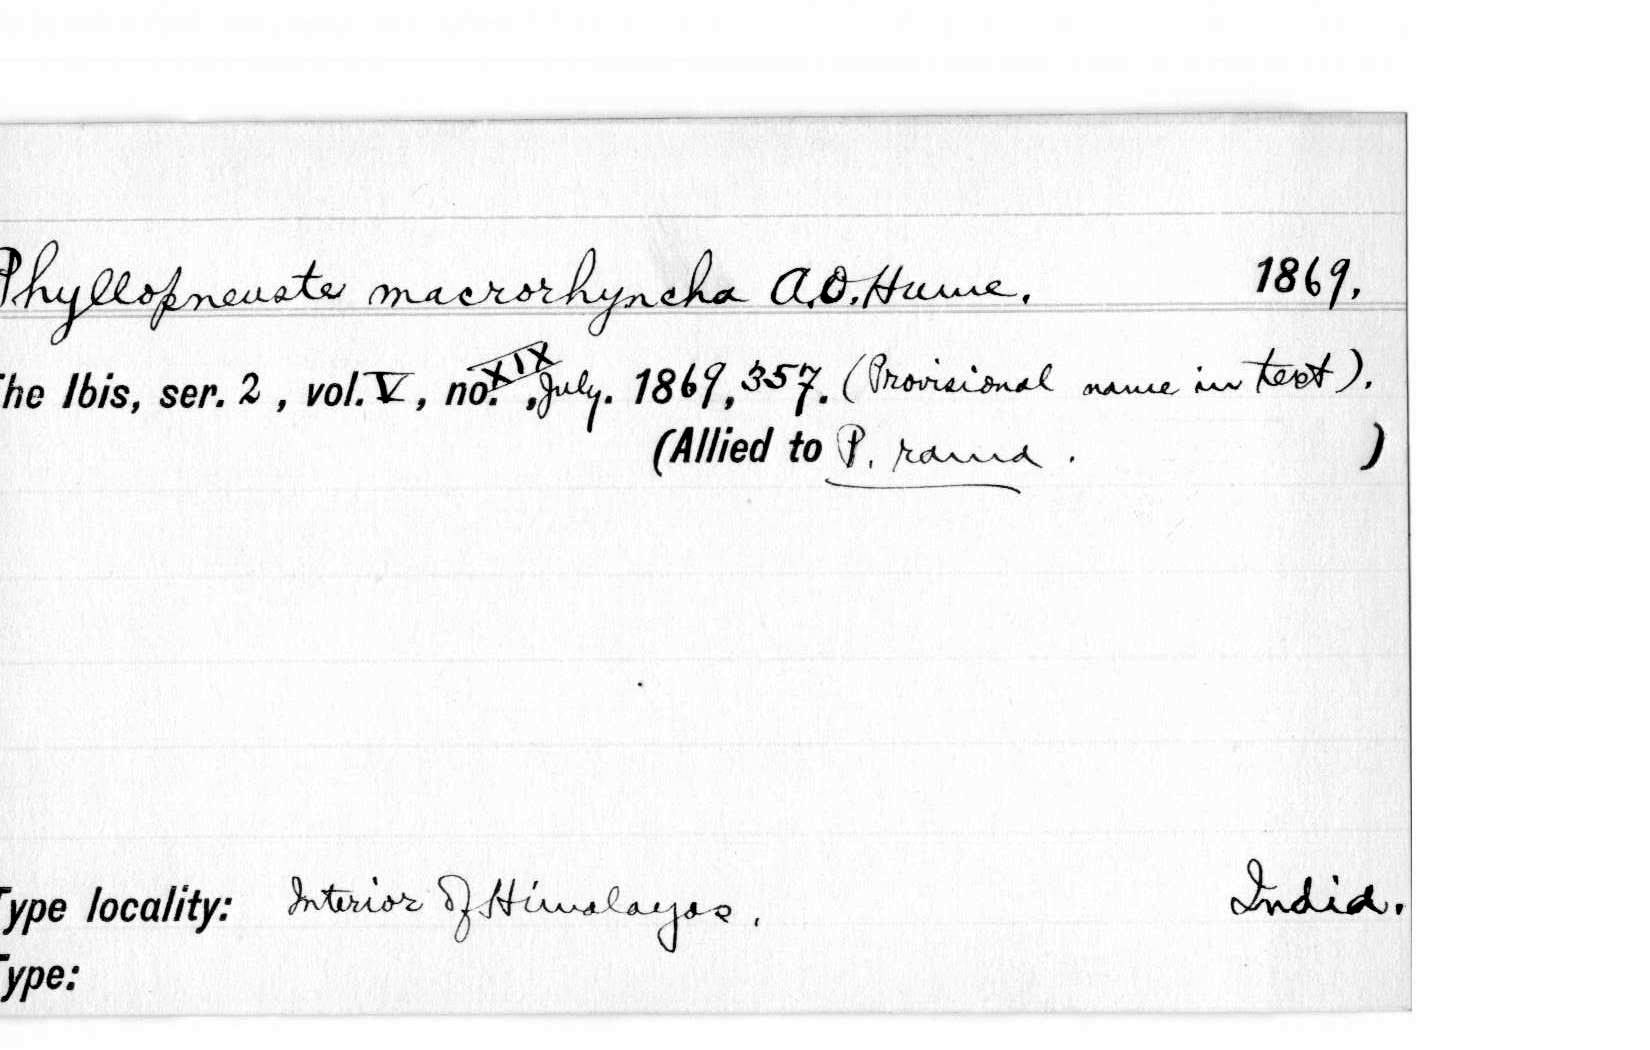 Phyllopneuste macrorhyncha A.O. Hume. 1869.
The Ibis, ser. 2, vol. V, no. XIX, July. 1869, 357. (Provisional name in text).
(Allied to P. rama. )
Type locality: Interior of Himalayas. India.
Type: